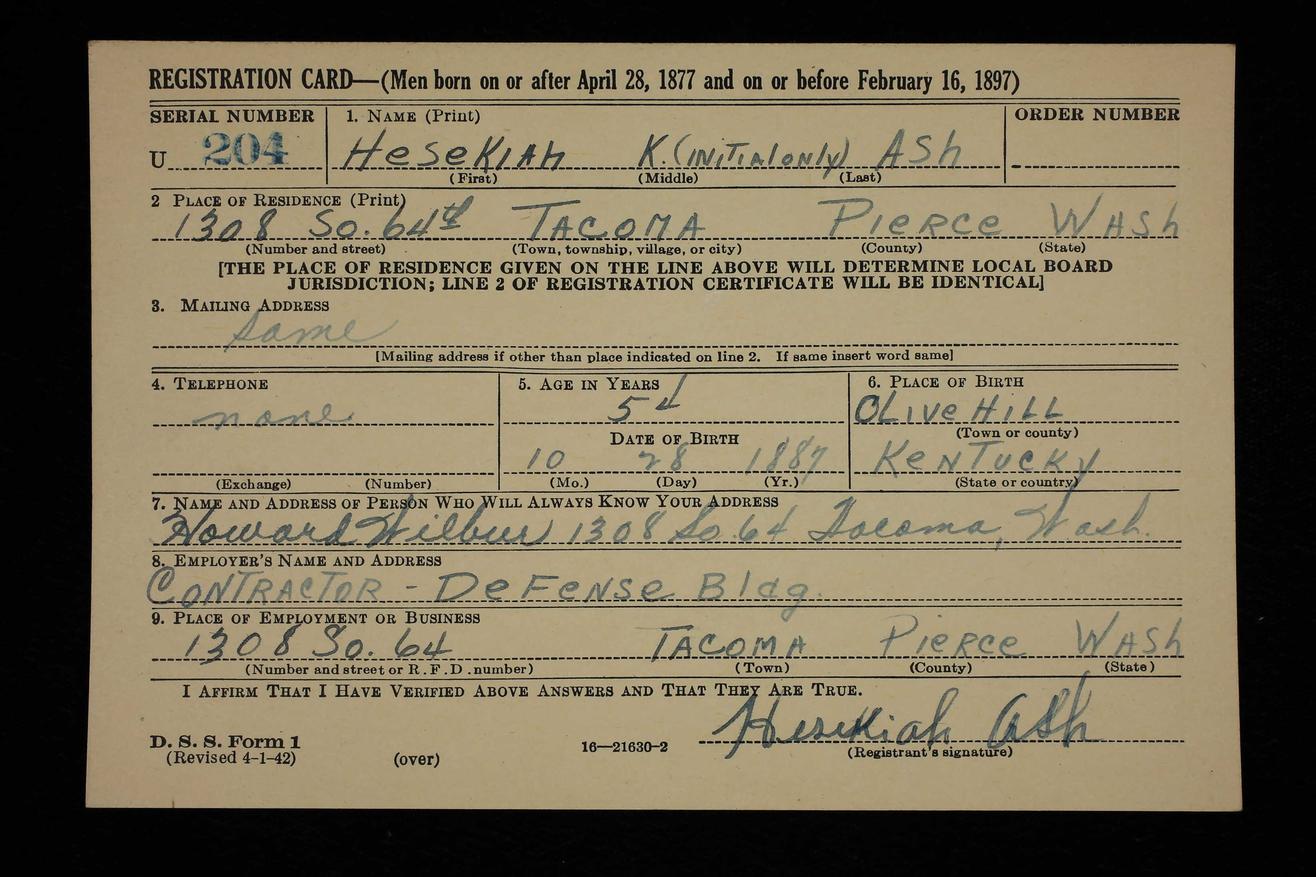 REGISTRATION CARD—(Men born on or after April 28, 1877 and on or before February 16, 1897)
SERIAL NUMBER 1. NAME (Print) ORDER NUMBER
U 204 HeSeKIAH K. (INITIAL only) ASh
(First) (Middle) (Last)
2 PLACE OF RESIDENCE (Print)
1308 So. 64th TACOMA PIeRCE WASh
(Number and street) (Town, township, village, or city) (County) (State)
[THE PLACE OF RESIDENCE GIVEN ON THE LINE ABOVE WILL DETERMINE LOCAL BOARD
JURISDICTION; LINE 2 OF REGISTRATION CERTIFICATE WILL BE IDENTICAL]
3. MAILING ADDRESS
Same
[Mailing address if other than place indicated on line 2. If same insert word same]
4. TELEPHONE 5. AGE IN YEARS 6. PLACE OF BIRTH
none 54 OLIVe HILL
DATE OF BIRTH (Town or county)
10 28 1887 KeNTUCKy
(Exchange) (Number) (Mo.) (Day) (Yr.) (State or country)
7. NAME AND ADDRESS OF PERSON WHO WILL ALWAYS KNOW YOUR ADDRESS
Howard Wilbur 1308 So. 64 Tacoma, Wash.
8. EMPLOYER'S NAME AND ADDRESS
CONTRACTOR - DeFeNSe Bldg.
9. PLACE OF EMPLOYMENT OR BUSINESS
1308 So. 64 TACOMA PIeRCe WASh
(Number and street or R. F. D. number) (Town) (County) (State)
I AFFIRM THAT I HAVE VERIFIED ABOVE ANSWERS AND THAT THEY ARE TRUE.
Hesekiah Ash
D. S. S. Form 1 16—21630-2 (Registrant's signature)
(Revised 4-1-42) (over)